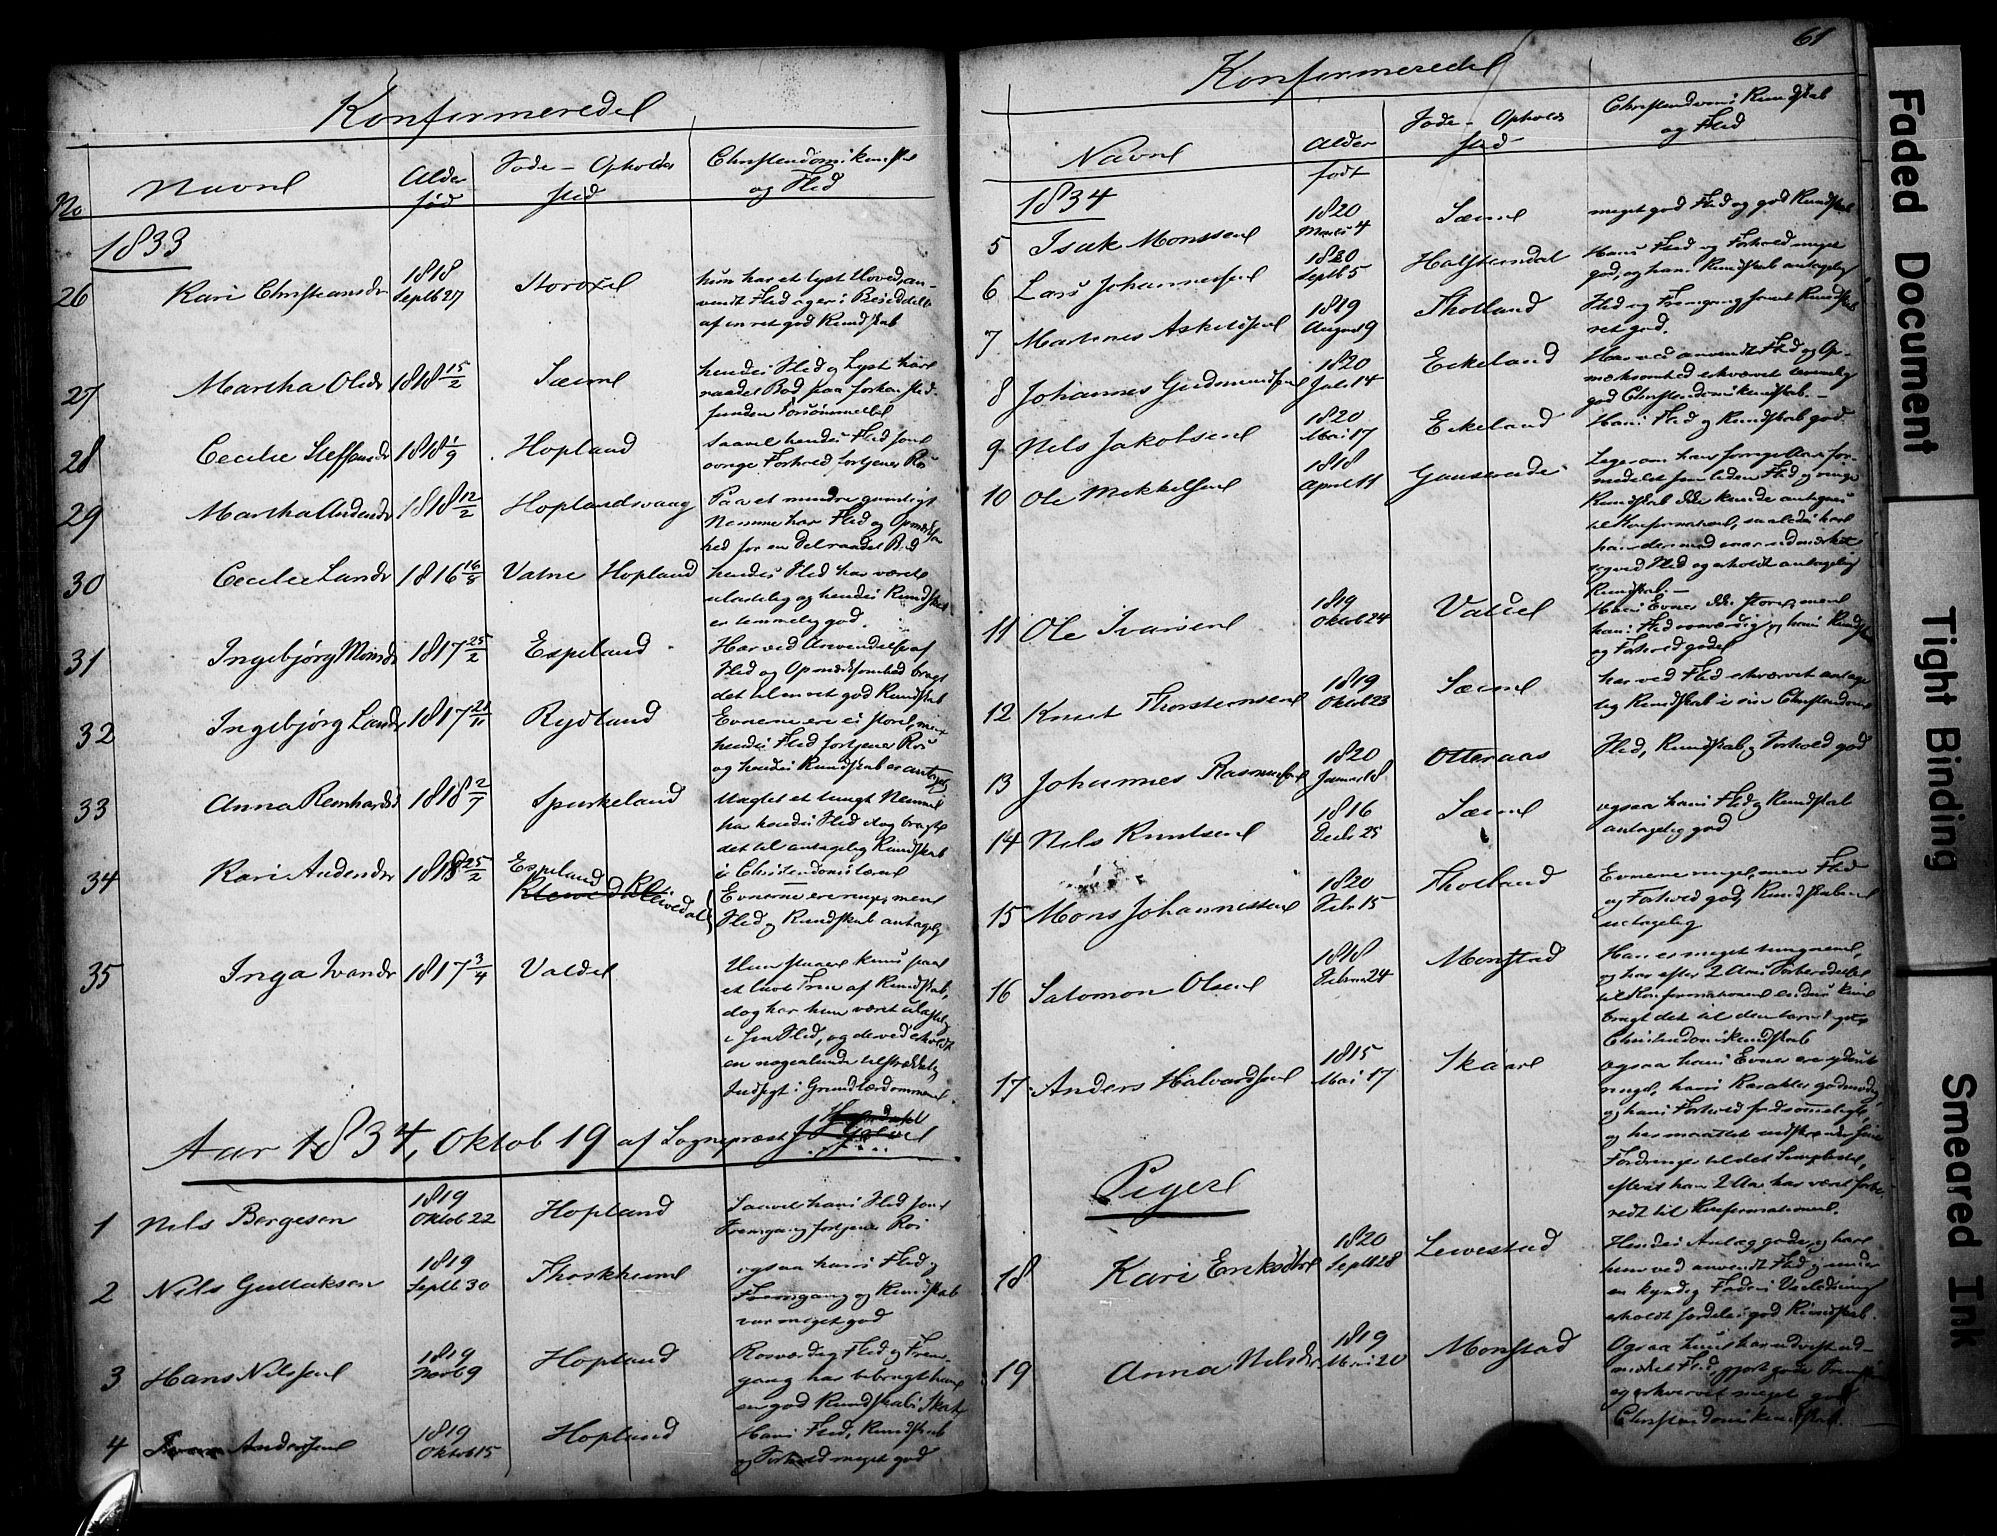 Konfirmerede
No
Navne
Alder
fød
Føde- Opholds
sted
Christendomskundskab
og Flid
1833
26
Kari Christiansdr
1818
Septb 27
Storoxe
hun har et lyst Hoved, an-
vendt Flid og er i Besiddelse
af en ret god Kundskab
27
Martha Olsdr
1818 15/2
Sæim
hendes Flid og Lyst have
raadet Bod paa
Forsømmelse
28
Cecilie Steffensdr
1818 1/9
Hopland
Saavel hendes Flid som
øvrige Forhold fortjener Ros
29
Martha Andersdr
1818 12/2
Hoplandsvaag
Paa et mindre gunstigt
Nemme har Flid og Opmærksom
hed for en del raadet Bod
30
Cecilie Larsdr
1816 16/8
Vatne Hopland
hendes Flid har været
ulastelig og hendes Kundskab
er temmelig god.
31
Ingebjørg Monsdr
1817 25/2
Espeland
Har ved Anvendelse af
Flid og Opmærksomhed bragt
det til en ret god Kundskab
32
Ingebjørg Larsdr
1817 21/11
Rydland
Evnerne ere ei store, men
hendes Flid fortjener Ros
og hendes Kundskab er antagel
33
Anna Reinhardsd
1818 2/7
Spurkeland
Uagtet et tungt Nemme
har hendes Flid dog bragt
det til antagelig Kundskab
i Christendomslæren
34
Kari Andersdr
1818 25/2
Espeland
Klevedal
Evnerne ere ringe, men
Flid og Kundskab antagelig
35
Inga Ivarsdr
1817 3/4
Valde
Hun staaer kuns paa
et lavt Trin af Kundskab,
dog har hun været ulastelig
i sin Flid, og derved erholdt
en nogenlunde tilstrækkelig
Indsigt i Grundlærdommene.
Aar 1834, Oktob 19 af Sognepræst
1
Nils Børgesen
1819
Oktob 22
Hopland
Saavel hans Flid som
Fremgang fortjener Ros
2
Nils Gullaksen
1819
Septb 30
ogsaa hans Flid og
Fremgang og Kundskab
var meget god
3
Hans Nilssen
1819
Novb 9
Hopland
Rosværdig Flid og Frem-
gang har bibragt ham
en god Kundskabs Skat
4
Anderssen
1819
Oktob 15
Hopland
Hans Flid, Kundskab
og Forhold meget god
61
Konfirmerede
Navne
Alder
født
Føde- Opholds
sted
Christendoms Kundskab
og Flid
1834
5
Isak Monssen
1820
Marts 4
Sæim
meget god Flid og god Kundskab
6
Lars Johannessen
1820
Septb 5
Halstendal
Hans Flid og Forhold meget
god, og hans Kundskab antagelig
7
Mathias Askeldsen
1819
August 9
Tholland
Flid og Fremgang samt Kundskab
ret god.
8
Johannes Gudmundsen
1820
Juli 14
Eckeland
Har ved anvendt Flid og Op-
mærksomhed erhvervet temmelig
god Christendomskundskab.
9
Nils Jakobsen
1820
Mai 17
Eckeland
Hans Flid og Kundskab god.
10
Ole Mikkelsen
1818
April 11
Ligesom han forrige Aar for-
medelst Flid og ringe
Kundskab ikke kunde antages
til Konfirmationen, saaledes har
han dermod iaar udmærket
sig ved Flid og erholdt antagelig
Kundskab.
11
Ole Ivarsen
1819
Oktob 24
Valde
Hans Evner ikke store, men
hans Flid rosværdig og hans Kundsk
og Forhold gode
12
Knut Thorsteinsen
1819
Oktob 23
Sæim
har ved Flid erhvervet antage
lig Kundskab i sin Christendom
13
Johannes Rasmussen
1820
Januar 18
Otteraas
Flid, Kundskab og Forhold god
14
Nils Knutsen
1816
Decbr 25
Sæim
ogsaa hans Flid og Kundskab
antagelig god
15
Mons Johannessen
1820
Febr 15
Tholland
Evnerne ringe, men Flid
og Forhold god, og Kundskaben
antagelig
16
Salomon Olsen
1818
Februar 24
Monstad
Han er meget tungnem,
og har efter 2 Aars Forberedelse
til Konfirmationen endnu kun
bragt det til den tarveligste
Christendomskundskab
17
Anders Halvardsen
1815
Mai 17
Skaar
ogsaa hans Evner ere yderst
ringe, hans Karakter godmodig,
og hans Forhold fredsommeligt,
og har maattet indskrænke sine
Fordringer til det Simpleste,
efterat han 2 Aar har været forbe
redt til Konfirmationen.
Piger
18
Kari Eriksdtr
1820
Septb 28
Levestad
Hendes Anlæg gode, og har
hun ved anvendt Flid og under
en kyndig Faders Veiledning
erholdt særdeles god Kundskab.
19
Anna Nilsdr
1819
Mai 20
Monstad
Ogsaa hun har udvist ud-
mærket Flid, gjort gode Fremskr
og erhvervet meget god
Christendomskundskab.
Faded Document
Tight Binding
Smeared Ink